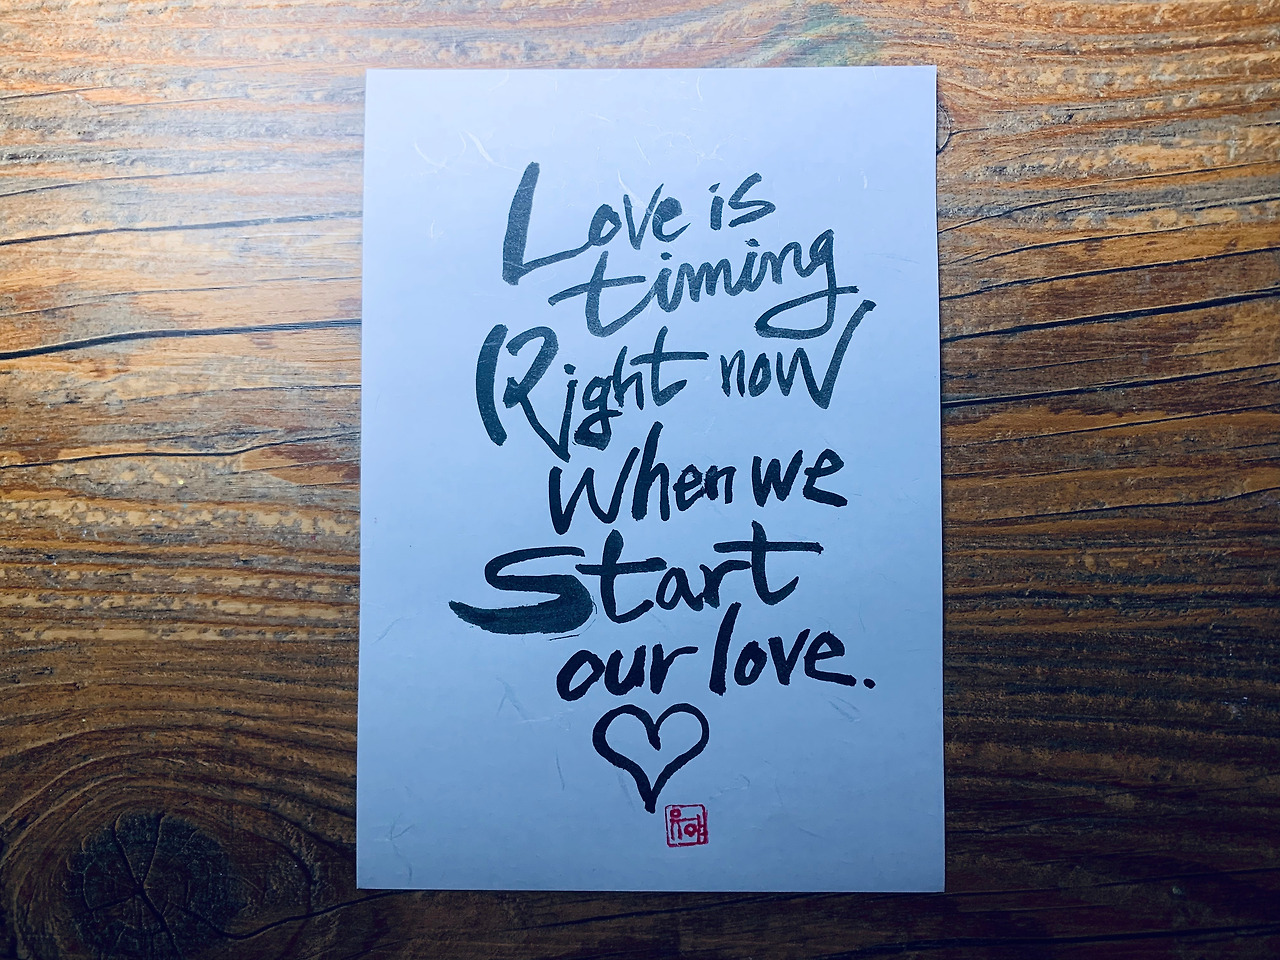 Love is
timing
Right now
When we
Start
our love.